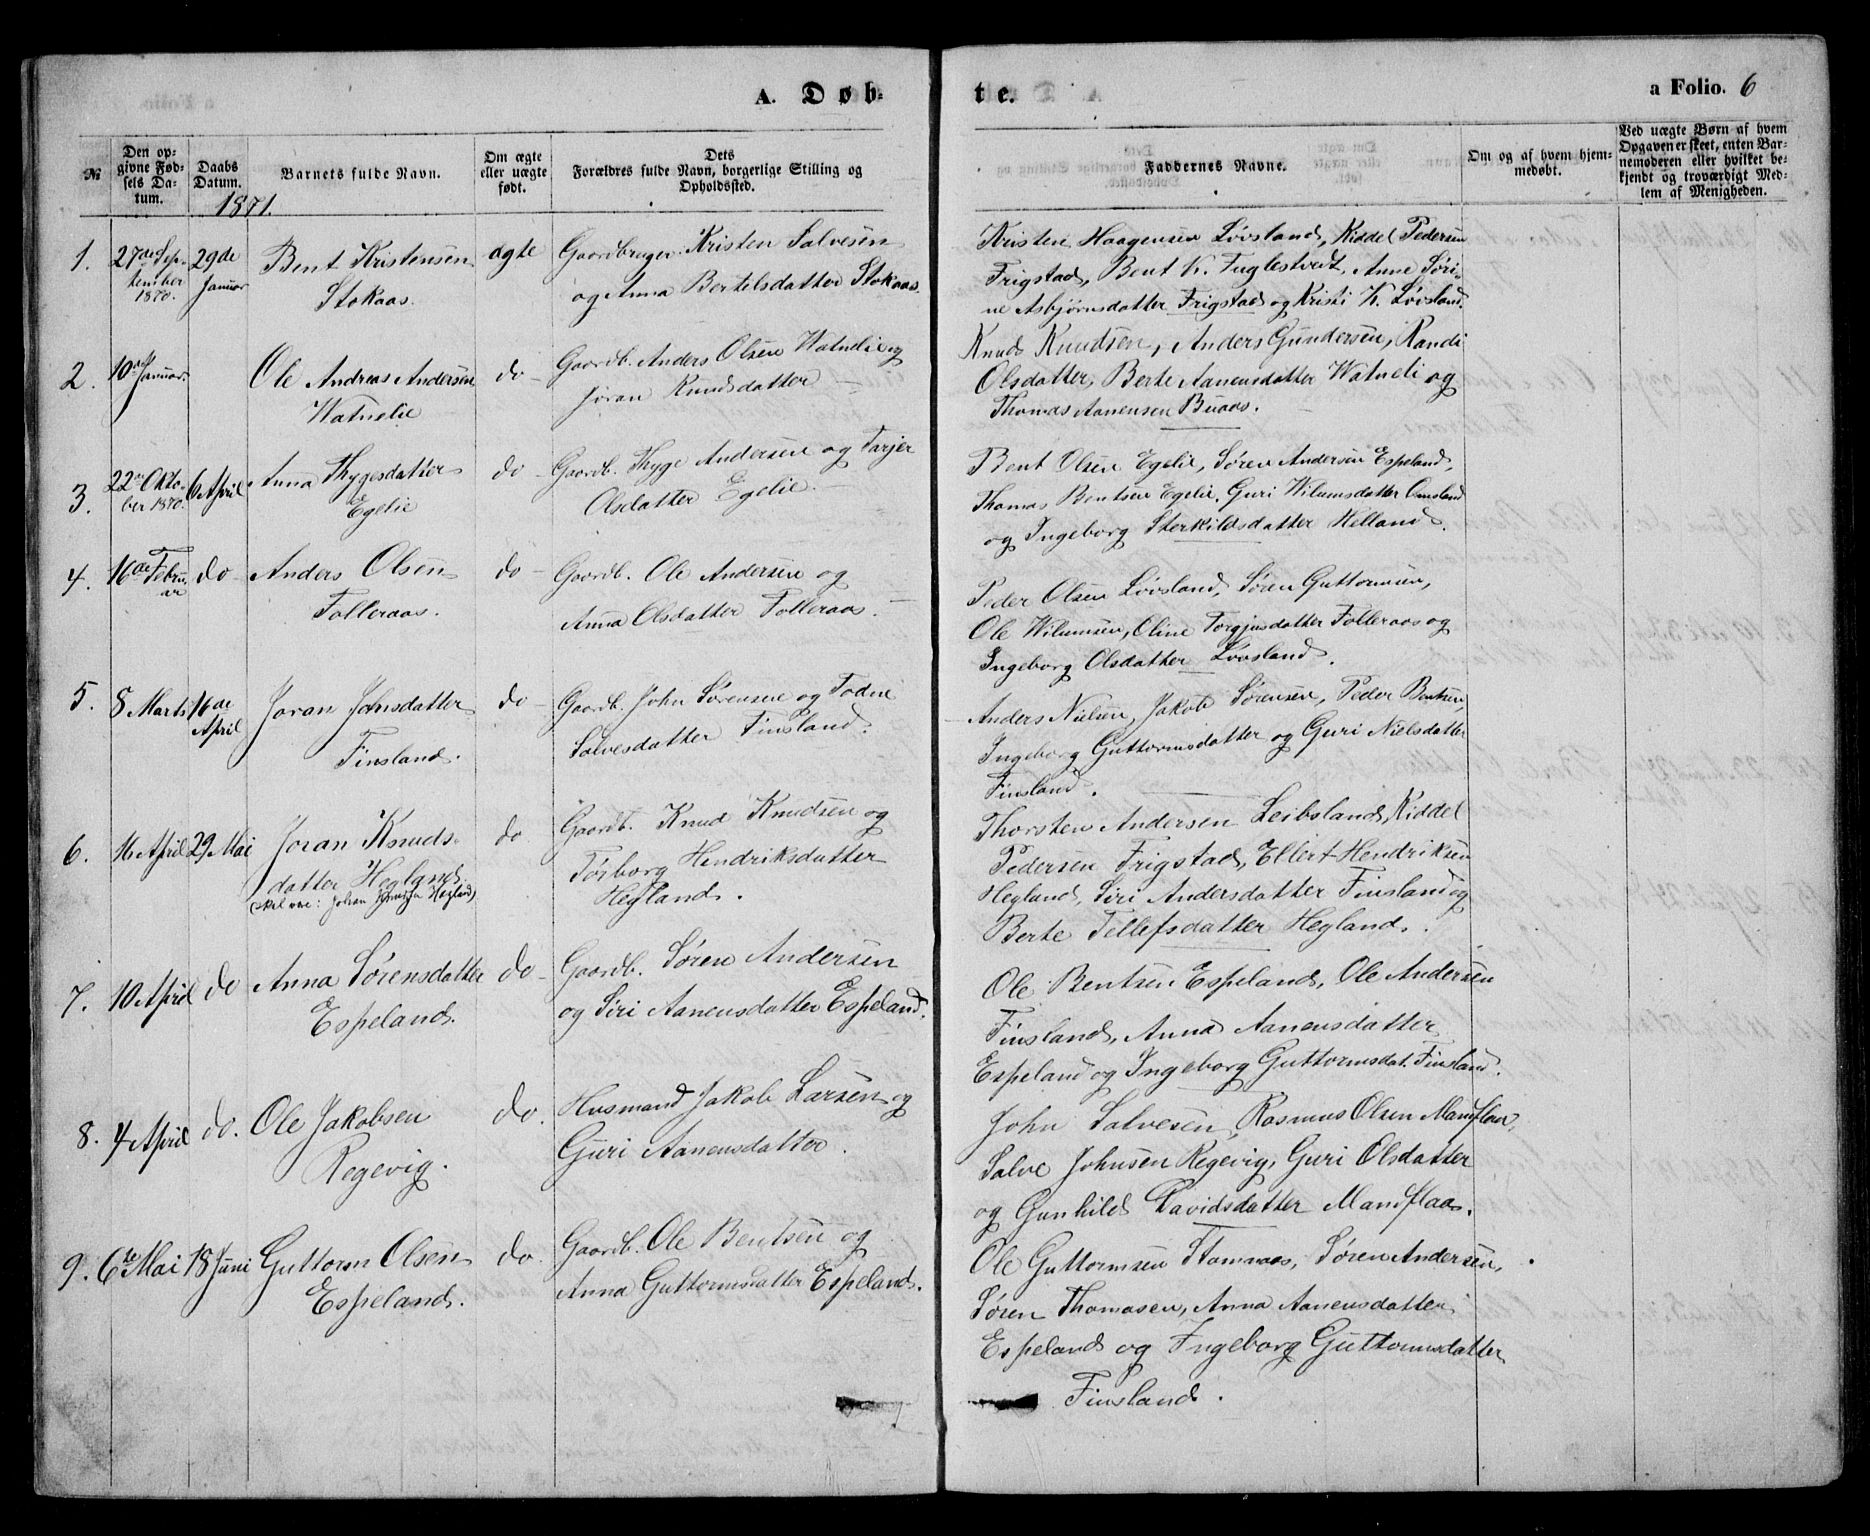 A. Døb-
te.
a Folio. 6
№
Den op-
givne Fød-
sels Da-
tum.
Daabs
Datum.
Barnets fulde Navn.
Om ægte
eller uægte
født.
Dets
Forældres fulde Navn, borgerlige Stilling og
Opholdssted.
Faddernes Navne.
Om og af hvem hjem-
medøbt.
Ved uægte Børn af hvem
Opgaven er skeet, enten Bar-
nemoderen eller hvilket be-
kjendt og troværdigt Med-
lem af Menigheden.
1871.
1.
27de Sep-
tember
1870.
29de
Januar
Bent Kristensen
Stokaas.
ægte
Gaardbruger Kristen Salvesen
og Anna Bertelsdatter Stokaas.
Kristen Haagensen Løvsland, Kiddel Pedersen
Frigstad, Bent K. Fuglestvedt, Anne Søri-
ne Asbjørnsdatter Frigstad og Kristi K. Løvsland.
2.
10de Januar.
Ole Andreas Andersen
Watnelie
do
Gaardb. Anders Olsen Watnelie og
Joran Knudsdatter
Knud Knudsen, Anders Gundersen, Randi
Olsdatter, Berte Aanensdatter Watneli og
Thomas Aanensen Buaas.
3.
22de Okto-
ber 1870.
6 April
Anna Thygesdatter
Egelie
do
Gaardb. Thyge Andersen og Tarjer
Olsdatter Egelie.
Bent Olsen Egelie, Søren Andersen Espeland,
Thomas Bentsen Egelie, Guri Wilumsdatter Omsland
og Ingeborg Sterkildsdatter Helland.
4.
16de Febru-
ar
do
Anders Olsen
Folleraas.
do
Gaardb. Ole Andersen og
Anna Olsdatter Folleraas.
Peder Olsen Løvsland, Søren Guttormsen,
Ole Wilumsen, Oline Torgjusdatter Folleraas og
Ingeborg Olsdatter Løvsland.
5.
8 Marts
16de
April
Joran Johnsdatter
Finsland.
do
Gaardb. John Sørensen og Todne
Salvesdatter Finsland.
Anders Nielsen, Jakob Sørensen, Peder Bentsen,
Ingeborg Guttormsdatter og Guri Nielsdatter
Finsland.
6.
16 April
29 Mai
Joran Knuds-
datter Hegland.
(skal være: Johan Knudsen Hegland)
do
Gaardb. Knud Knudsen og
Torborg Hendriksdatter
Hegland.
Thorsten Andersen Leibsland, Kiddel
Pedersen Frigstad, Ellert Hendriksen
Hegland, Siri Andersdatter Finsland og
Berte Tellefsdatter Hegland.
7.
10 April
do
Anna Sørensdatter
Espeland.
do
Gaardb. Søren Andersen
og Siri Aanensdatter Espeland.
Ole Bentsen Espeland, Ole Andersen
Finsland, Anna Aanensdatter
Espeland og Ingeborg Guttormsdat. Finsland.
8.
4 April
do.
Ole Jakobsen
Regevig.
do.
Husmand Jakob Larsen og
Guri Aanensdatter.
John Salvesen, Rasmus Olsen Mandflaa,
Salve Johnsen Regevig, Guri Olsdatter
og Gunhild Davidsdatter Mandflaa.
9.
6te Mai
18 Juni
Guttorm Olsen
Espeland.
do.
Gaardb. Ole Bentsen og
Anna Guttormsdatter Espeland.
Ole Guttormsen Stomnaas, Søren Andersen,
Søren Thomasen, Anna Aanensdatter
Espeland og Ingeborg Guttormsdatter
Finsland.